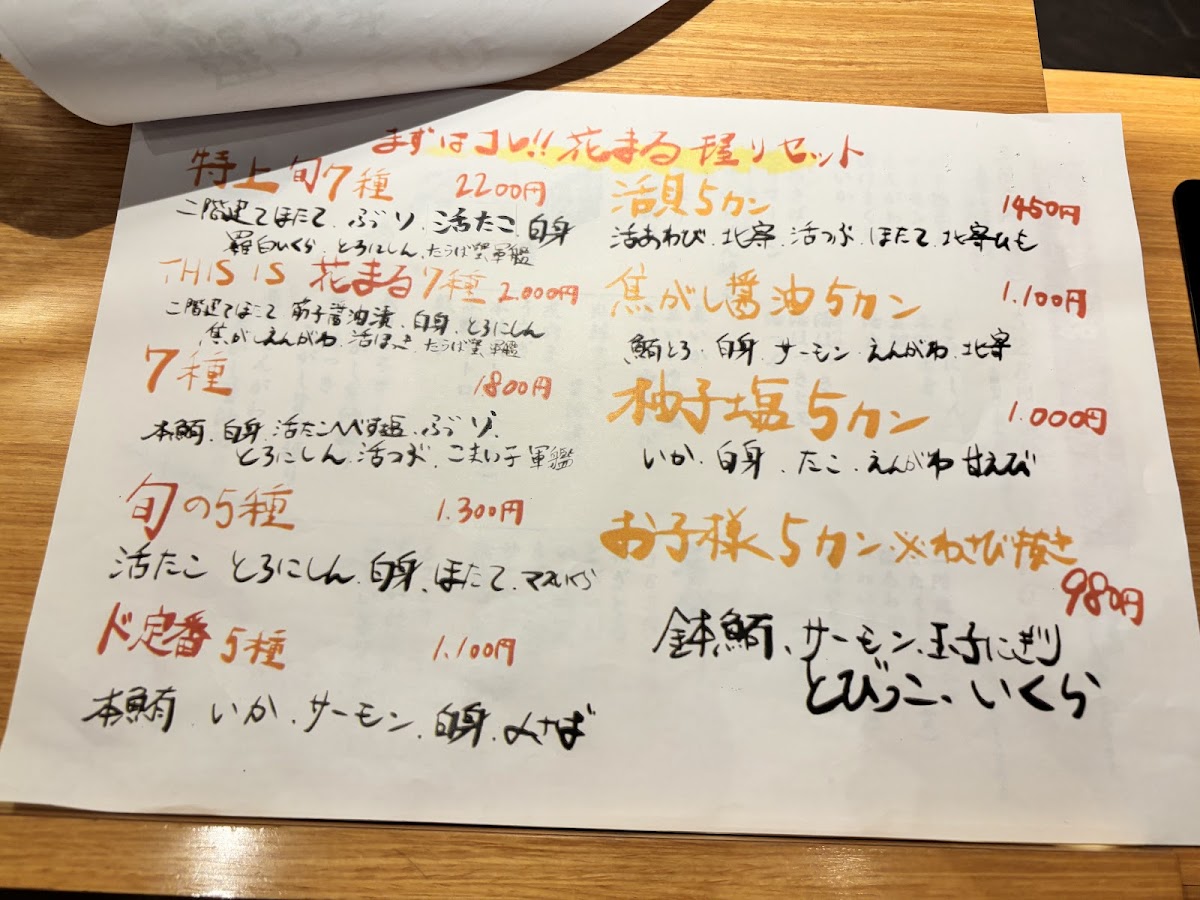 まずはコレ!! 花まる握りセット
特上旬7種 2200円
二階建てほたて、ぶり、活たこ、白身
羅臼いくら、とろにしん、たらば蟹軍艦
THIS IS 花まる7種 2.000円
二階建てほたて 筋子醤油漬、白身、とろにしん
焦がしえんがわ、活ほっき、たらば蟹軍艦
7種 1800円
本鮪、白身、活たこ、ぶり、
とろにしん、活つぶ、こまい子軍艦
旬の5種 1.300円
活たこ とろにしん、白身、ほたて、マスいくら
ド定番5種 1.100円
本鮪、いか、サーモン、白身、〆さば
活貝5カン 1450円
活あわび、北寄、活つぶ、ほたて、北寄ひも
焦がし醤油5カン 1.100円
鮪とろ、白身、サーモン、えんがわ、北寄
柚子塩5カン 1.000円
いか、白身、たこ、えんがわ 甘えび
お子様5カン ※わさび抜き
980円
鉢鮪、サーモン、玉子にぎり
とびっこ、いくら